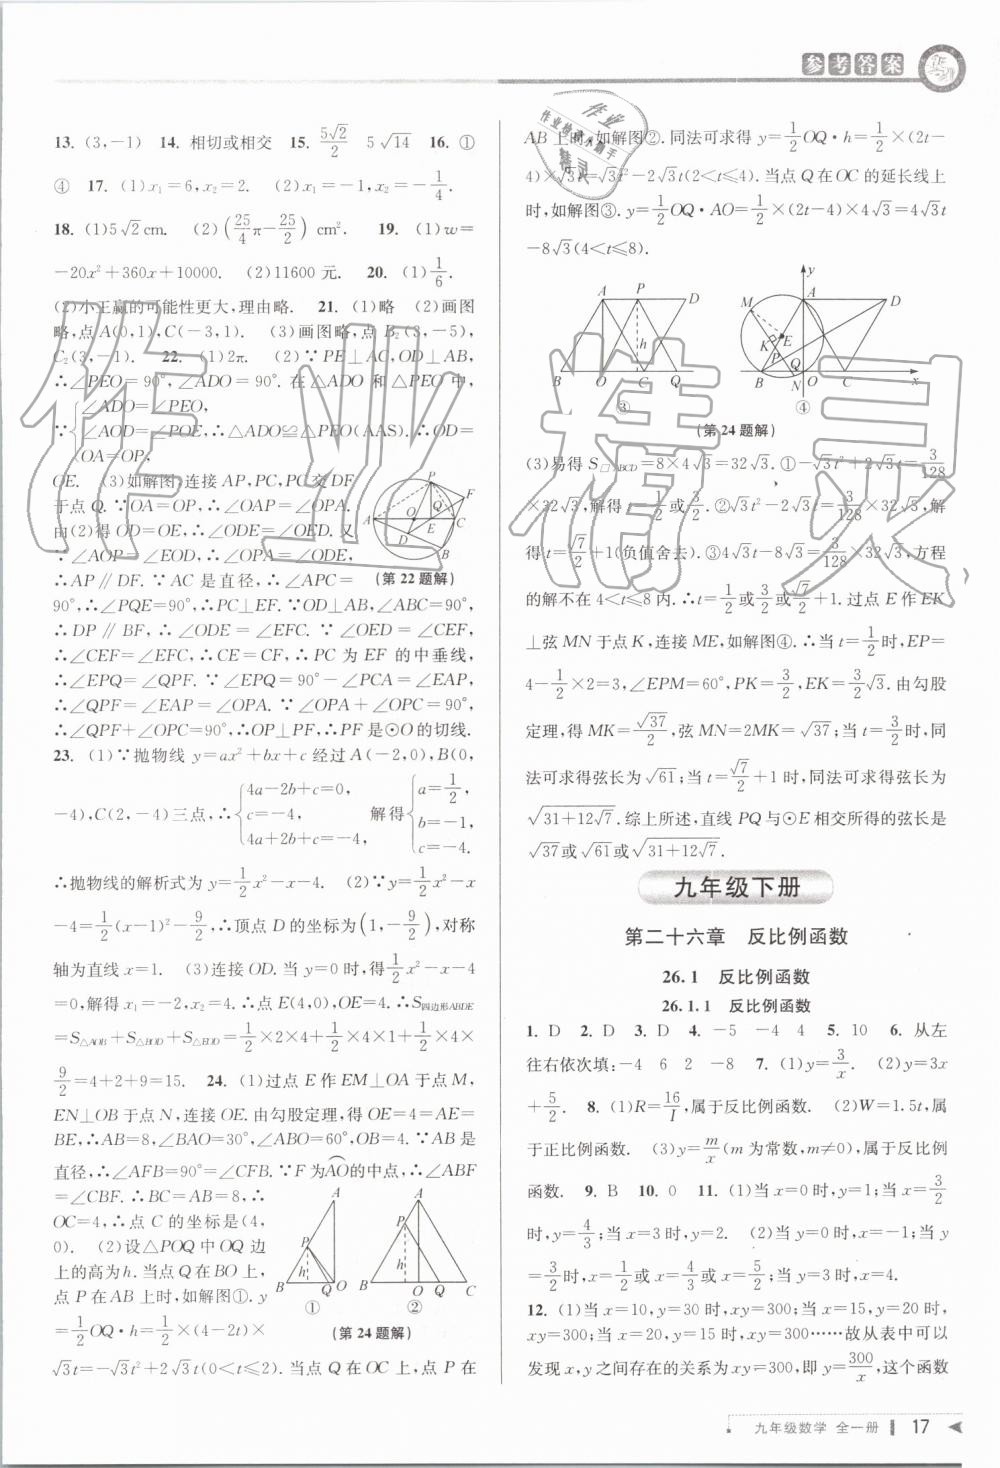 参考答案
13. (3,-1) 14. 相切或相交 15. 5√2/2 5√14 16. ①
④ 17. (1)x₁=6,x₂=2. (2)x₁=-1,x₂=-1/4.
18. (1)5√2cm. (2)(25/4π-25/2)cm². 19. (1)w=
-20x²+360x+10000. (2)11600元. 20. (1)1/6.
(2)小王赢的可能性更大,理由略. 21. (1)略 (2)画图
略,点A(0,1),C(-3,1). (3)画图略,点B₂(3,-5),
C₂(3,-1). 22. (1)2π. (2)∵PE⊥AC,OD⊥AB,
∴∠PEO=90°,∠ADO=90°.在△ADO和△PEO中,
∵{∠ADO=∠PEO,
∠AOD=∠POE,∴△ADO≌△PEO(AAS).∴OD=
OA=OP,
OE. (3)如解图,连接AP,PC,PC交DF
于点Q.∵OA=OP,∴∠OAP=∠OPA.
由(2)得OD=OE,∴∠ODE=∠OED.又
∵∠AOP=∠EOD,∴∠OPA=∠ODE,
∴AP∥DF.∵AC是直径,∴∠APC=
90°,∴∠PQE=90°,∴PC⊥EF.∵OD⊥AB,∠ABC=90°,
∴DP∥BF,∴∠ODE=∠EFC.∵∠OED=∠CEF,
∴∠CEF=∠EFC,∴CE=CF,∴PC为EF的中垂线,
∴∠EPQ=∠QPF.∵∠EPQ=90°-∠PCA=∠EAP,
∴∠QPF=∠EAP=∠OPA.∵∠OPA+∠OPC=90°,
∴∠QPF+∠OPC=90°,∴OP⊥PF,∴PF是⊙O的切线.
P
F
A
O
Q
E
C
D
B
(第22题解)
23. (1)∵抛物线y=ax²+bx+c经过A(-2,0),B(0,
-4),C(2,-4)三点,∴{4a-2b+c=0, c=-4, 4a+2b+c=-4. 解得{a=1/2, b=-1, c=-4.
∴抛物线的解析式为y=1/2x²-x-4. (2)∵y=1/2x²-x
-4=1/2(x-1)²-9/2,∴顶点D的坐标为(1,-9/2),对称
轴为直线x=1. (3)连接OD.当y=0时,得1/2x²-x-4
=0,解得x₁=-2,x₂=4.∴点E(4,0),OE=4.∴S四边形ABDE
=S△AOB+S△BOD+S△EOD=1/2×2×4+1/2×4×1+1/2×4×
9/2=4+2+9=15. 24. (1)过点E作EM⊥OA于点M,
EN⊥OB于点N,连接OE.由勾股定理,得OE=4=AE=
BE,∴AB=8,∠BAO=30°,∠ABO=60°,OB=4.∵AB是
直径,∴∠AFB=90°=∠CFB.∵F为AO的中点,∴∠ABF
=∠CBF.∴BC=AB=8,∴
OC=4,∴点C的坐标是(4,
0). (2)设△POQ中OQ边
上的高为h.当点Q在BO上,
点P在AB上时,如解图①.y
=1/2OQ·h=1/2×(4-2t)×
√3t=-√3t²+2√3t(0<t≤2).当点Q在OC上,点P在
A
P
h
B
Q
O
①
A
P
h
B
O
Q
C
②
(第24题解)
AB上时,如解图②.同法可求得y=1/2OQ·h=1/2×(2t-
4)×√3t=√3t²-2√3t(2<t≤4).当点Q在OC的延长线上
时,如解图③.y=1/2OQ·AO=1/2×(2t-4)×4√3=4√3t
-8√3(4<t≤8).
A
P
D
h
B
O
C
Q
③
y
M
A
D
E
K
P
Q
B
N
O
C
x
④
(第24题解)
(3)易得S▱ABCD=8×4√3=32√3.①-√3t²+2√3t=3/128
×32√3,解得t=1/2或3/2.②√3t²-2√3t=3/128×32√3,解
得t=√7/2+1(负值舍去).③4√3t-8√3=3/128×32√3,方程
的解不在4<t≤8内.∴t=1/2或3/2或√7/2+1.过点E作EK
⊥弦MN于点K,连接ME,如解图④.∴当t=1/2时,EP=
4-1/2×2=3,∠EPM=60°,PK=3/2,EK=3/2√3.由勾股
定理,得MK=√37/2,弦MN=2MK=√37;当t=3/2时,同
法可求得弦长为√61;当t=√7/2+1时,同法可求得弦长为
√31+12√7.综上所述,直线PQ与⊙E相交所得的弦长是
√37或√61或√31+12√7.
九年级下册
第二十六章 反比例函数
26.1 反比例函数
26.1.1 反比例函数
1. D 2. D 3. D 4. -5 -4 4 5. 10 6. 从左
往右依次填:-4 6 2 -8 7. (1)y=3/x. (2)y=3x
+5/2. 8. (1)R=16/I,属于反比例函数. (2)W=1.5t,属
于正比例函数. (3)y=m/x(m为常数,m≠0),属于反比例
函数. 9. B 10. 0 11. (1)当x=0时,y=1;当x=3/2
时,y=4/3;当x=3时,y=2. (2)当y=0时,x=-1;当y
=3/2时,x=1/2或x=4/3或x=5/2;当y=3时,x=4.
12. (1)当x=10,y=30时,xy=300;当x=15,y=20时,
xy=300;当x=20,y=15时,xy=300……故从表中可以
发现x,y之间存在的关系为xy=300,即y=300/x,这个函数
九年级数学 全一册 17
作业精灵